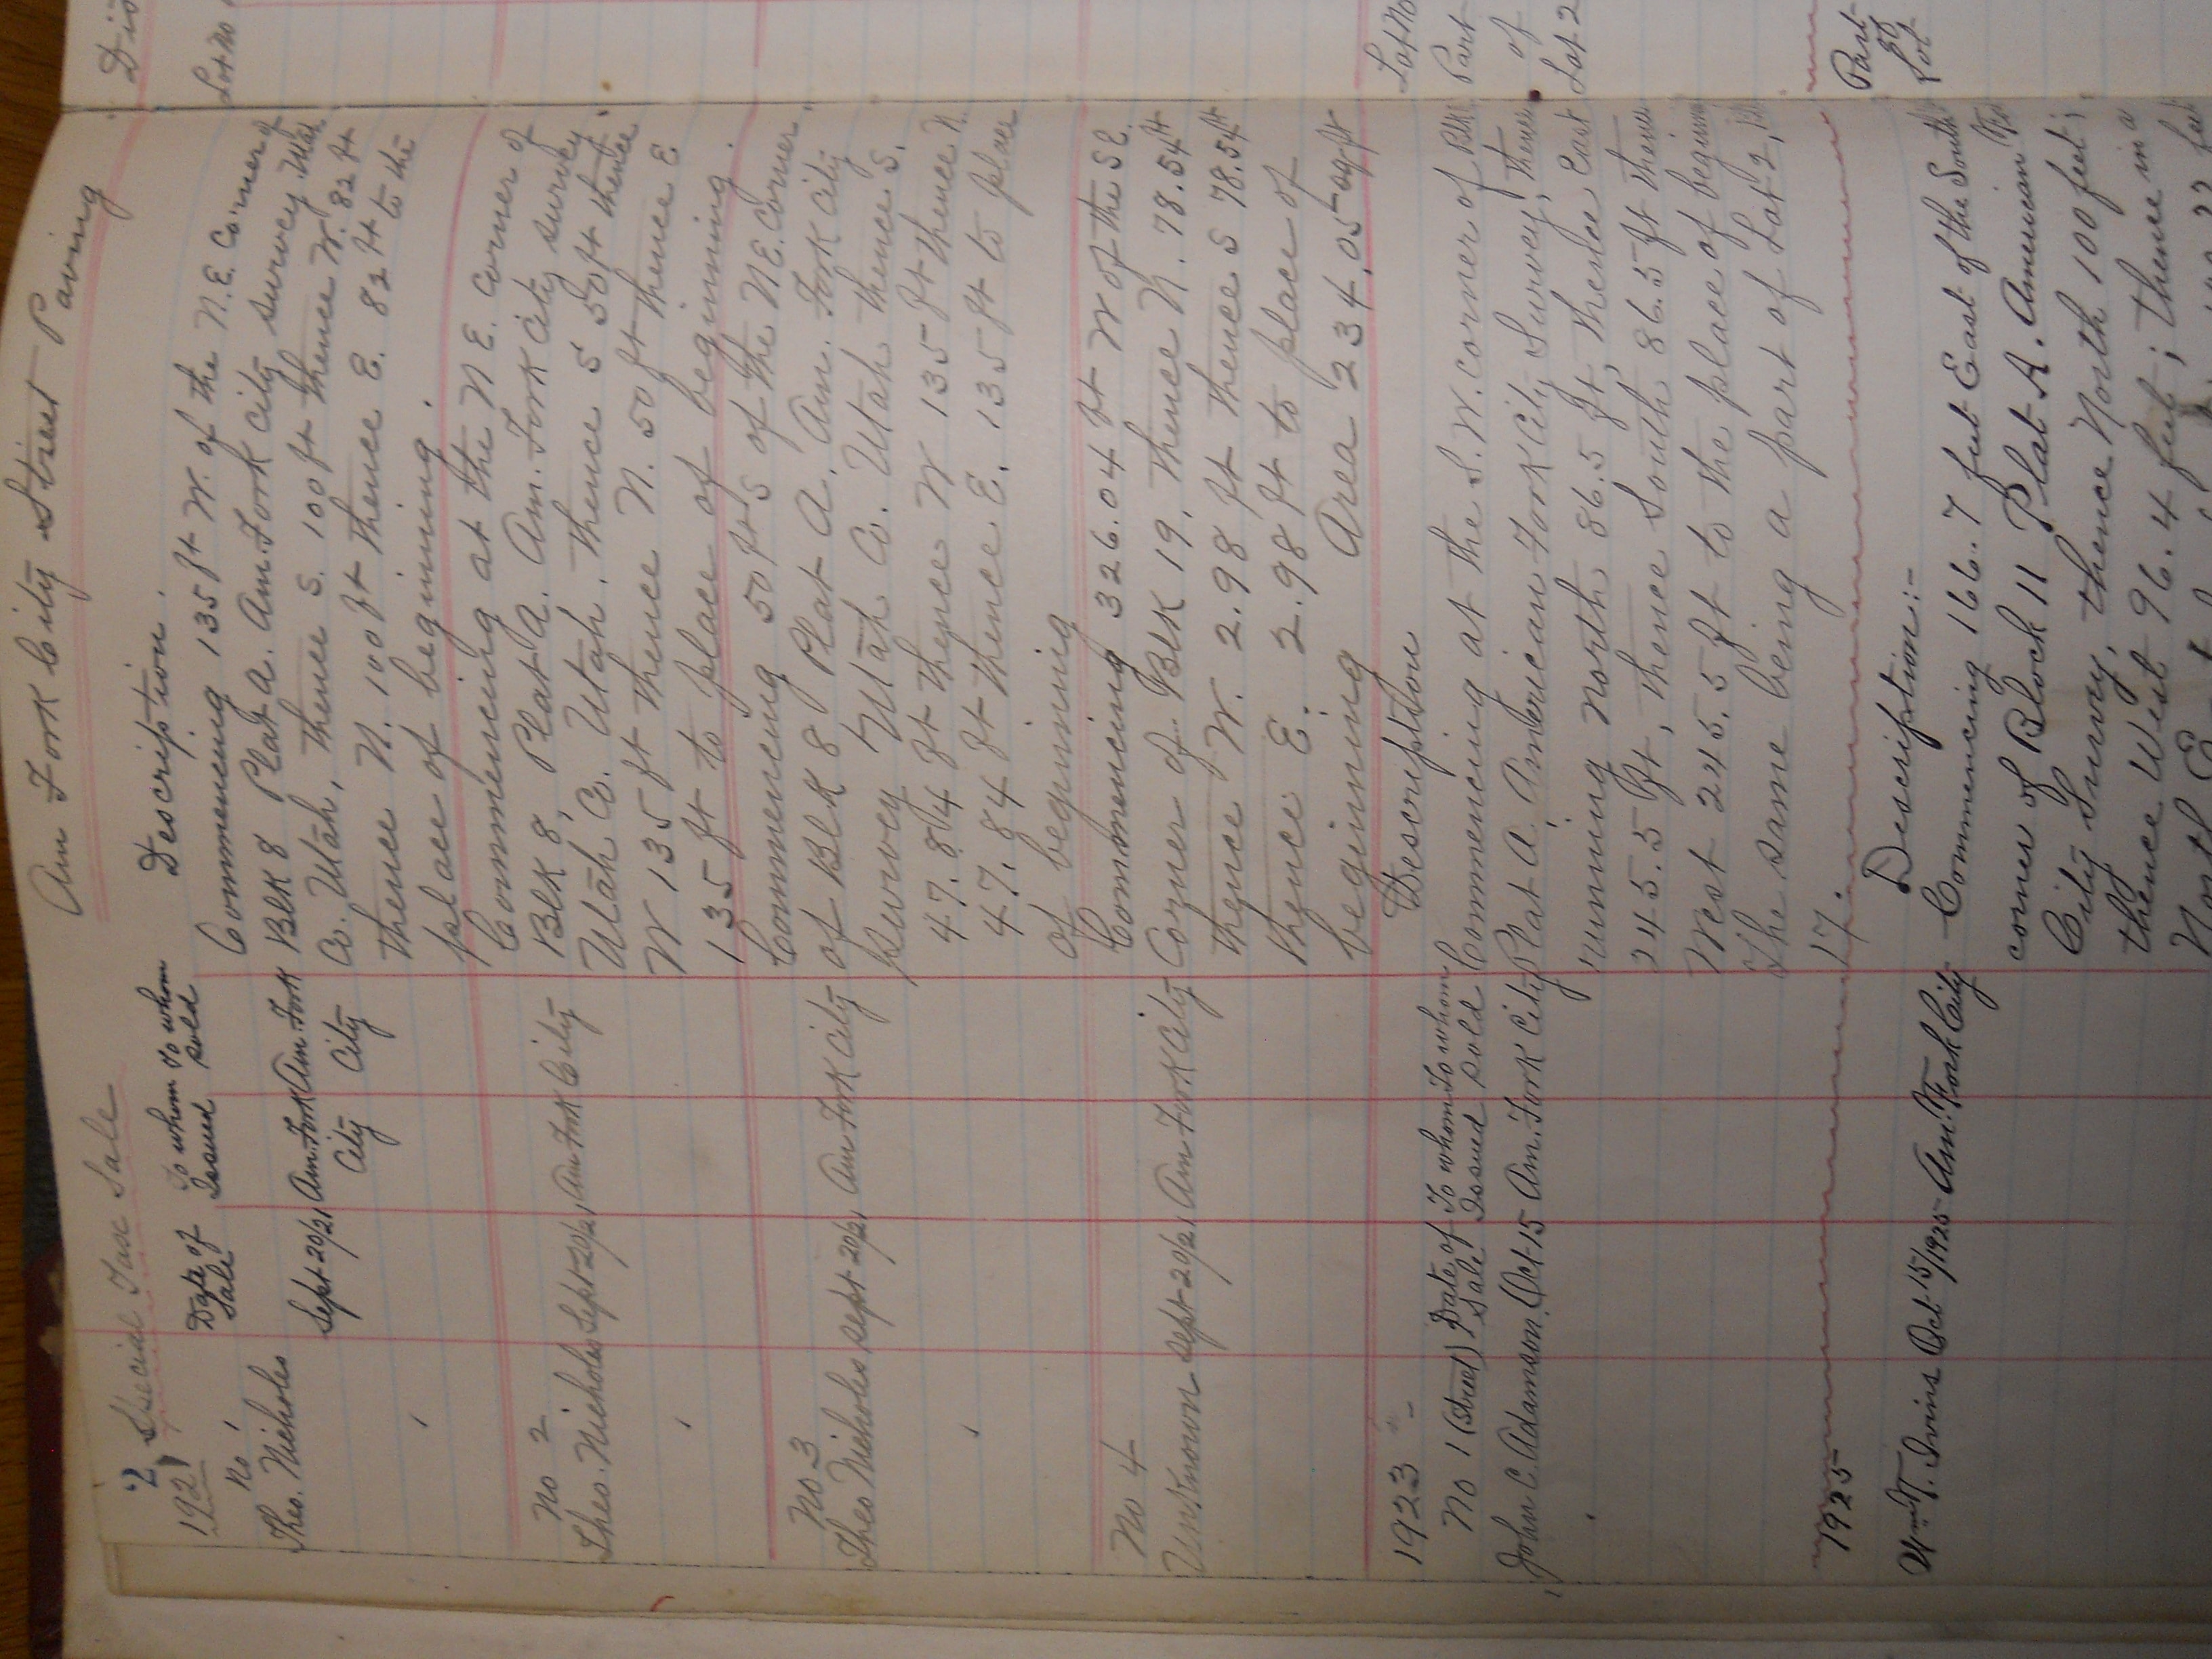 2 Special Tax Sale Am Fork City Street Paving
1921 Date of Sale To whom Issued To whom sold Description.
No 1
Theo. Nicholes Sept-20/21 Am. Fork City Am. Fork City
Commencing 135 ft W. of the N.E. Corner of
Blk 8 Plat A. Am. Fork City Survey Utah
Co. Utah, thence S. 100 ft thence W. 82 ft
thence N. 100 ft thence E. 82 ft to the
place of beginning.
No 2
Theo. Nicholes Sept-20/21 Am Fork City
Commencing at the N E. Corner of
Blk 8, Plat A. Am. Fork City survey
Utah Co. Utah. Thence S 50 ft thence
W 135 ft thence N. 50 ft thence E
135 ft to place of beginning.
No 3
Theo Nicholes Sept-20/21 Am Fork City
Commencing 50 ft S of the N.E. Corner
of Blk 8 Plat A. Am. Fork City
Survey Utah Co. Utah thence S.
47.84 ft thence W 135 ft thence N.
47.84 ft thence E. 135 ft to place
of beginning
No 4
Unknown Sept-20/21 Am Fork City
Commencing 326.04 ft W of the SE.
Corner of Blk 19, thence N. 78.54 ft
thence W. 2.98 ft thence S 78.54 ft
thence E. 2.98 ft to place of
beginning Area 234.05 sq ft
1923 -
No 1 (Street) Date of Sale To whom Issued To whom sold Description
John C. Adamson Oct-15 Am. Fork City
Commencing at the S.W. Corner of Blk
Plat A. American Fork City Survey, thence
running North 86.5 ft, thence East
245.5 ft, thence South 86.5 ft thence
West 245.5 ft to the place of beginn
The same being a part of Lot 2, Blk
17.
1925 Description:-
Wm. T. Ivins Oct-15/1925 Am. Fork City
Commencing 166.7 feet East of the South
corner of Block 11 Plat A. American
City Survey, thence North 100 feet;
thence West 96.4 feet; thence in a
Lot No
Lot No
Part
of
Lot 2
Part
of
Lot